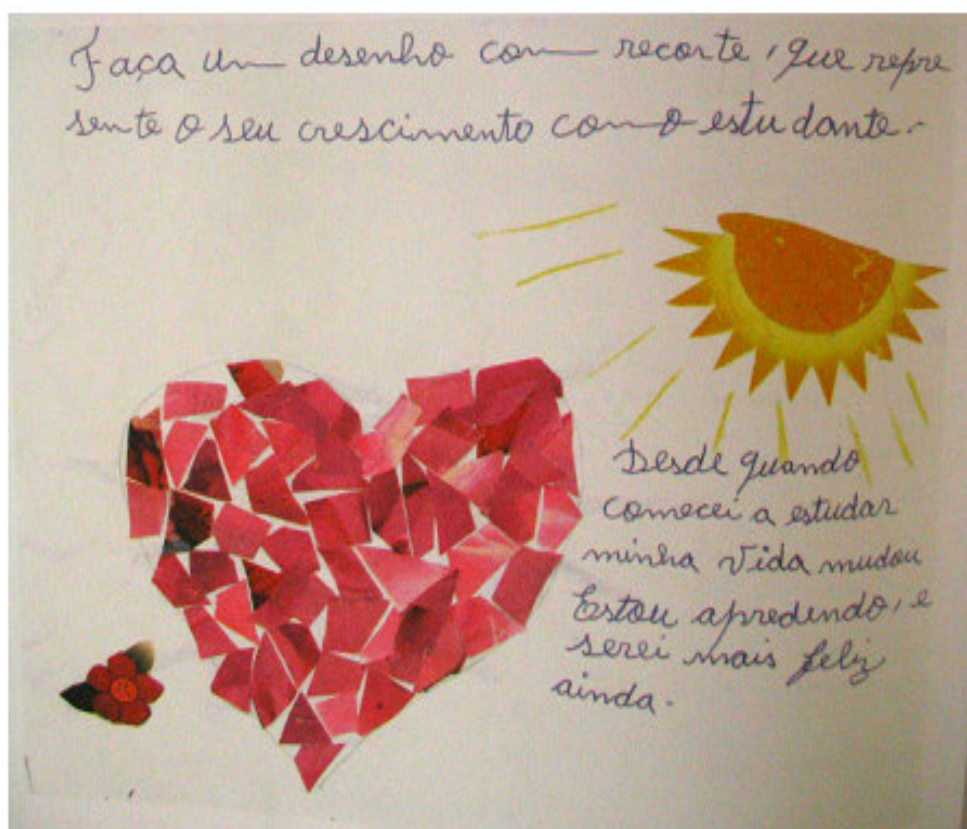 Faça um desenho com recorte, que repre
sente o seu crescimento como estudante.
Desde quando
comecei a estudar
minha vida mudou
Estou apredendo, e
serei mais feliz
ainda.